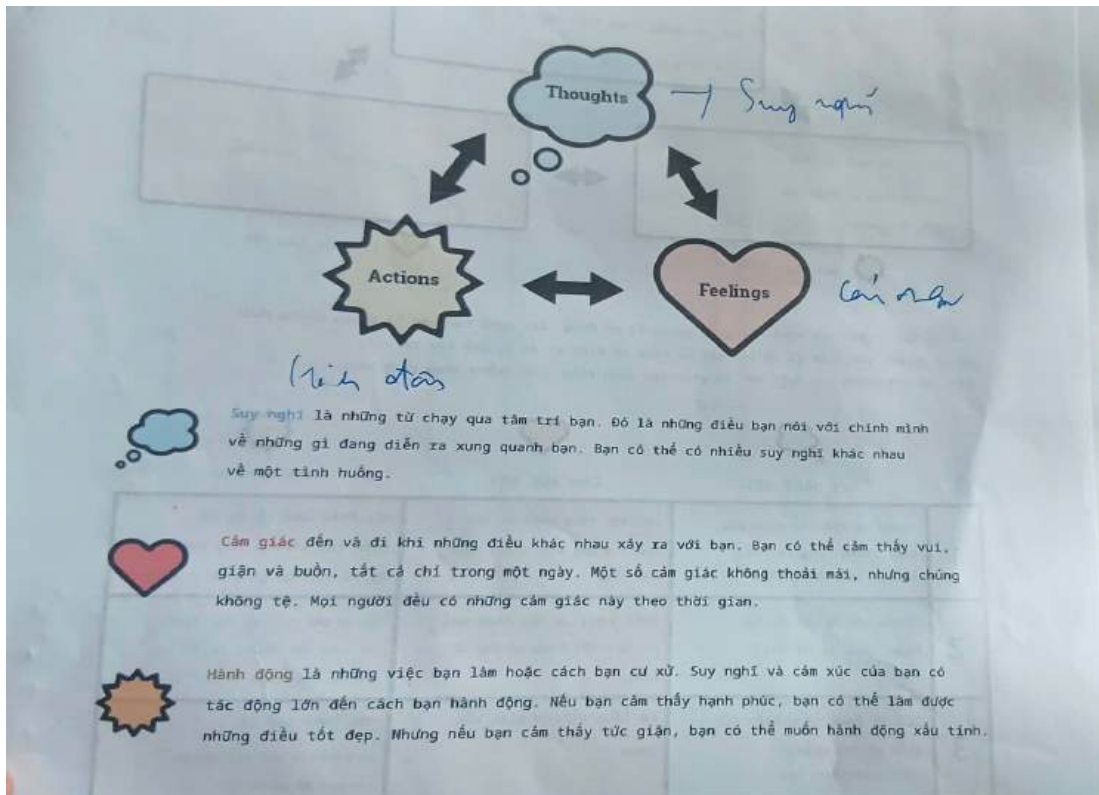 Thoughts → Suy nghĩ
Actions
Feelings
Hành động
Suy nghĩ là những từ chạy qua tâm trí bạn. Đó là những điều bạn nói với chính mình
về những gì đang diễn ra xung quanh bạn. Bạn có thể có nhiều suy nghĩ khác nhau
về một tình huống.
Cảm giác đến và đi khi những điều khác nhau xảy ra với bạn. Bạn có thể cảm thấy vui,
giận và buồn, tất cả chỉ trong một ngày. Một số cảm giác không thoải mái, nhưng chúng
không tệ. Mọi người đều có những cảm giác này theo thời gian.
Hành động là những việc bạn làm hoặc cách bạn cư xử. Suy nghĩ và cảm xúc của bạn có
tác động lớn đến cách bạn hành động. Nếu bạn cảm thấy hạnh phúc, bạn có thể làm được
những điều tốt đẹp. Nhưng nếu bạn cảm thấy tức giận, bạn có thể muốn hành động xấu tính.